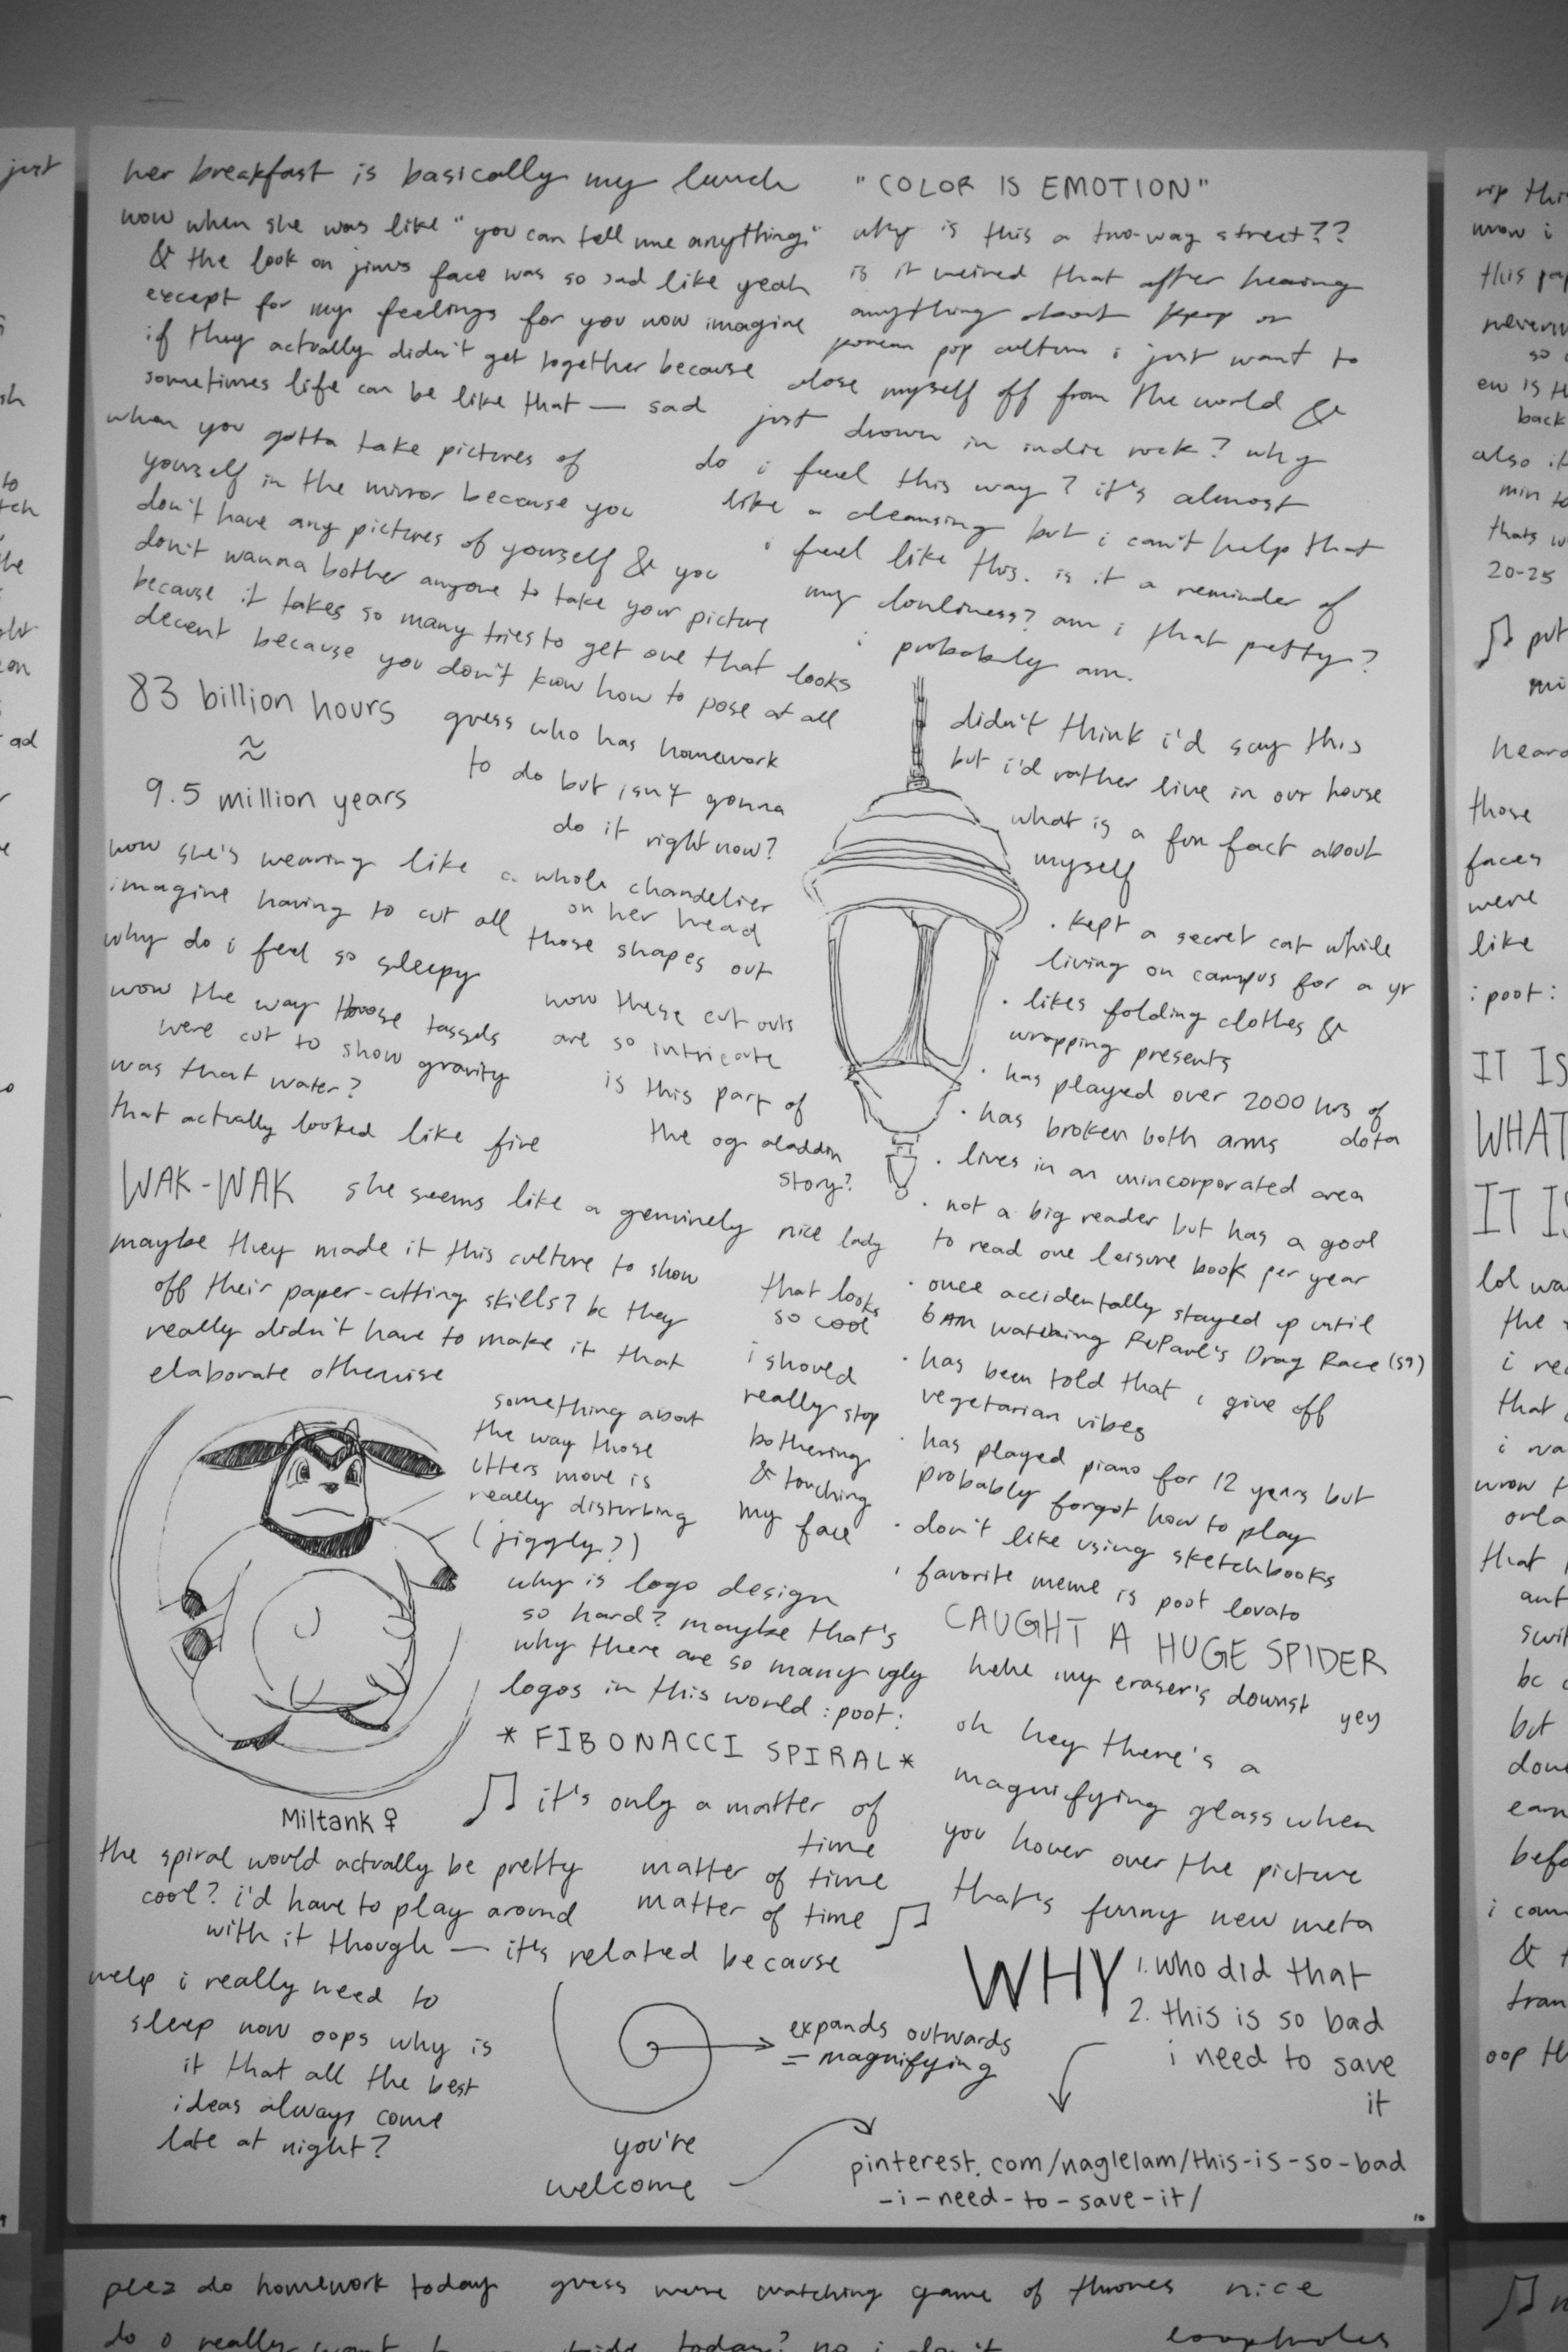 her breakfast is basically my lunch
wow when she was like "you can tell me anything"
& the look on jim's face was so sad like yeah
except for my feelings for you now imagine
if they actually didn't get together because
sometimes life can be like that — sad
when you gotta take pictures of
yourself in the mirror because you
don't have any pictures of yourself & you
don't wanna bother anyone to take your picture
because it takes so many tries to get one that looks
decent because you don't know how to pose at all
83 billion hours
≈
9.5 million years
guess who has homework
to do but isn't gonna
do it right now?
wow she's wearing like a whole chandelier
on her head
imagine having to cut all those shapes out
why do i feel so sleepy
wow the way those tassels
were cut to show gravity
was that water?
that actually looked like fire
wow these cut outs
are so intricate
is this part of
the og aladdin
story?
WAK-WAK
she seems like a genuinely nice lady
maybe they made it this culture to show
off their paper-cutting skills? bc they
really didn't have to make it that
elaborate otherwise
that looks
so cool
i should
really stop
bothering
& touching
my face
something about
the way those
utters move is
really disturbing
(jiggly?)
Miltank ♀
why is logo design
so hard? maybe that's
why there are so many ugly
logos in this world :poot:
* FIBONACCI SPIRAL *
♫ it's only a matter of
time
matter of time
matter of time ♫
the spiral would actually be pretty
cool? i'd have to play around
with it though — it's related because
expands outwards
= magnifying
welp i really need to
sleep now oops why is
it that all the best
ideas always come
late at night?
you're
welcome
"COLOR IS EMOTION"
why is this a two-way street??
is it weired that after hearing
anything about kpop or
korean pop culture i just want to
close myself off from the world &
just drown in indie rock? why
do i feel this way? it's almost
like a cleansing but i can't help that
i feel like this. is it a reminder of
my lonliness? am i that petty?
i probably am.
didn't think i'd say this
but i'd rather live in our house
what is a fun fact about
myself
· kept a secret cat while
living on campus for a yr
· likes folding clothes &
wrapping presents
· has played over 2000 hrs of
dota
· has broken both arms
· lives in an unincorporated area
· not a big reader but has a goal
to read one leisure book per year
· once accidentally stayed up until
6AM watching RuPaul's Drag Race (S9)
· has been told that i give off
vegetarian vibes
· has played piano for 12 years but
probably forgot how to play
· don't like using sketchbooks
· favorite meme is poot lovato
CAUGHT A HUGE SPIDER
hehe my eraser's downst yey
oh hey there's a
magnifying glass when
you hover over the picture
that's funny new meta
WHY
1. who did that
2. this is so bad
i need to save
it
pinterest.com/naglelam/this-is-so-bad
-i-need-to-save-it/
10
plez do homework today guess we're watching game of thrones nice
loopholes
just
to
ad
rip
this
back
also
20-25
♫ put
heard
those
faces
were
like
:poot:
IT IS
WHAT
lol
the
that
i
but
&